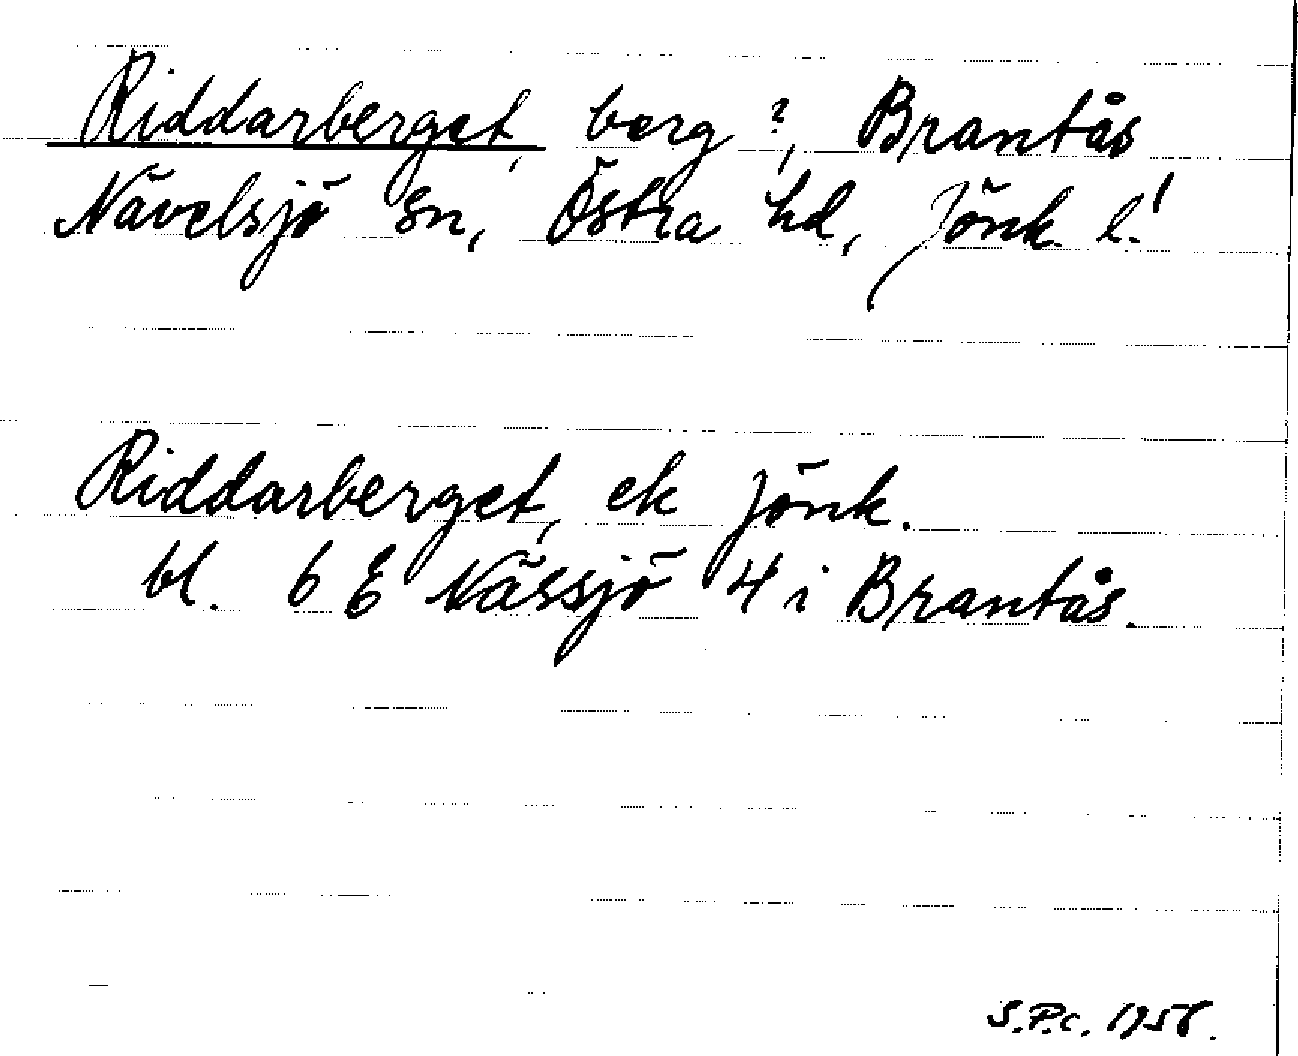 Riddarberget, berg?, Brantås
Nävelsjö sn, Östra hd, Jönk. l.!
Riddarberget, ek Jönk.
bl. 6 E Nässjö 4 i Brantås.
S.P.c. 1958.